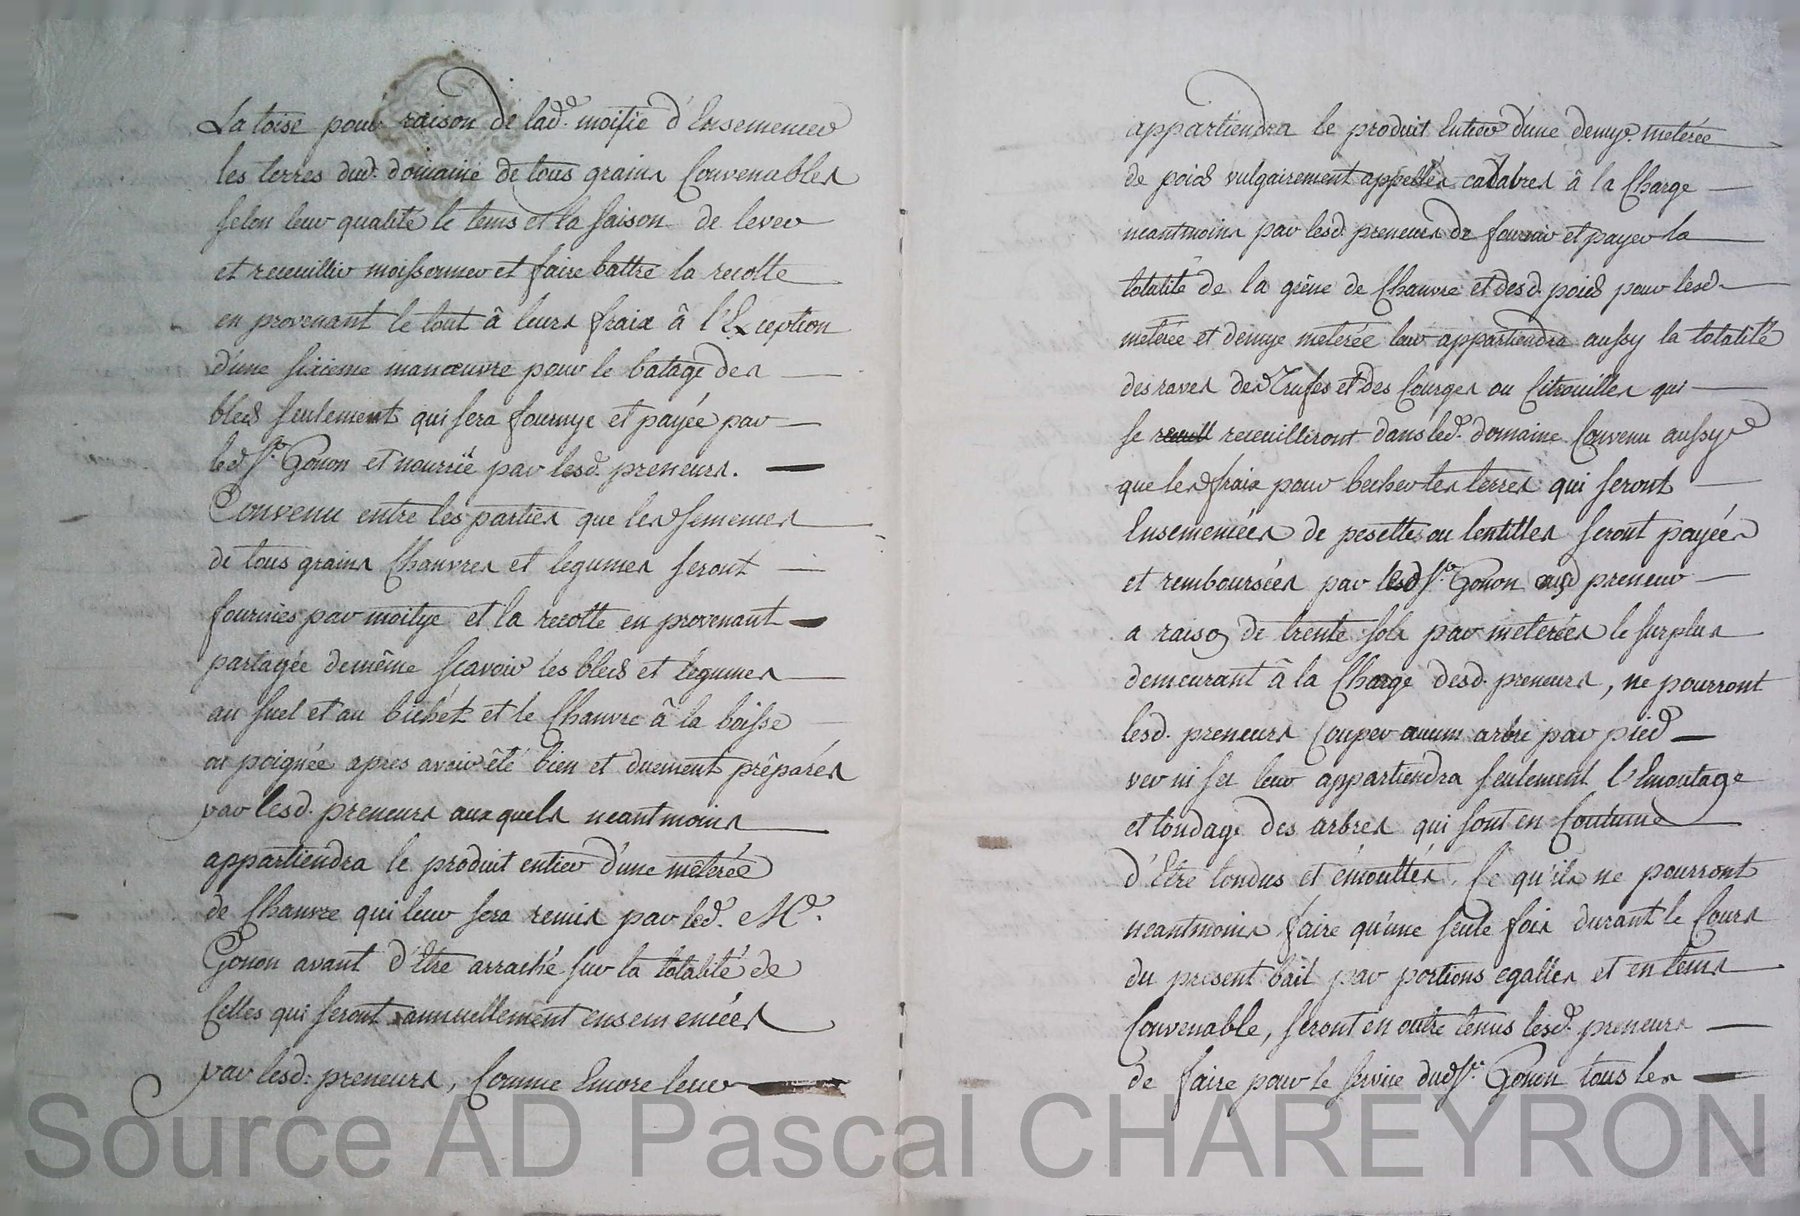 La toise pour raison de lad.e moitié d'Ensemencer
les terres dud. domaine de tous grains Convenables
selon leur qualité le tems et la saison de lever
et receuillir moissonner et faire battre la recolte
en provenant le tout â leurs fraix â l'Exception
d'une sixieme manœuvre pour le batage des
bleds seulement qui sera fournye et payée par
led. Sr. Gonon et nourrië par lesd. preneurs.
Convenu entre les parties que les semences
de tous grains Chanvres et legumes seront
fournies par moitye et la recolte en provenant
partagée demême sçavoir les bleds et legumes
au suel et au bichét et le Chanvre â la boisse
ou poignée apres avoir êté bien et duement préparés
par lesd. preneurs auxquels neantmoins
appartiendra le produit entier d'une mêterée
de Chanvre qui leur sera remis par led. Me.
Gonon avant d'Etre arraché sur la totalité de
Celles qui seront annuellement ensemencées
par lesd. preneurs, Comme Encore leur
appartiendra le produit Entier d'une demye meterée
de poids vulgairement appellés cadabres â la Charge
neantmoins par lesd. preneurs de fournir et payer la
totalité de la grêne de Chanvre et desd. poids pour lesd.
meterée et demye meterée leur appartiendra aussy la totalité
des raves des Trufes et des Courges ou Citrouilles qui
se recuell receuilliront dans led. domaine Convenu aussy
que les fraix pour becher les terres qui seront
Ensemencées de pesettes ou lentilles seront payées
et remboursées par led Sr. Gonon auxd preneur
a raison de trente sols par meterées le surplus
demeurant â la Charge desd. preneurs, ne pourront
lesd. preneurs Couper aucun arbre par pied
ver ni sec leur appartiendra seulement l'Emoutage
et tondage des arbres qui sont en Coutume
d'Etre tondus et émouttés, Ce qu'ils ne pourront
neantmoins faire qu'une seule fois durant le Cours
du present bail par portions egalles et en tems
Convenable, seront en outre tenus lesd. preneurs
de faire pour le service dud Sr. Gonon tous les
Source AD Pascal CHAREYRON